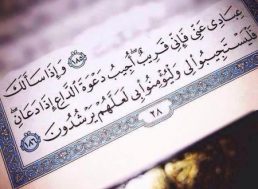 ﴿١٨٥﴾ وَإِذَا سَأَلَكَ
عِبَادِي عَنِّي فَإِنِّي قَرِيبٌ أُجِيبُ دَعْوَةَ الدَّاعِ إِذَا دَعَانِ
فَلْيَسْتَجِيبُوا لِي وَلْيُؤْمِنُوا بِي لَعَلَّهُمْ يَرْشُدُونَ ﴿١٨٦﴾
٢٨